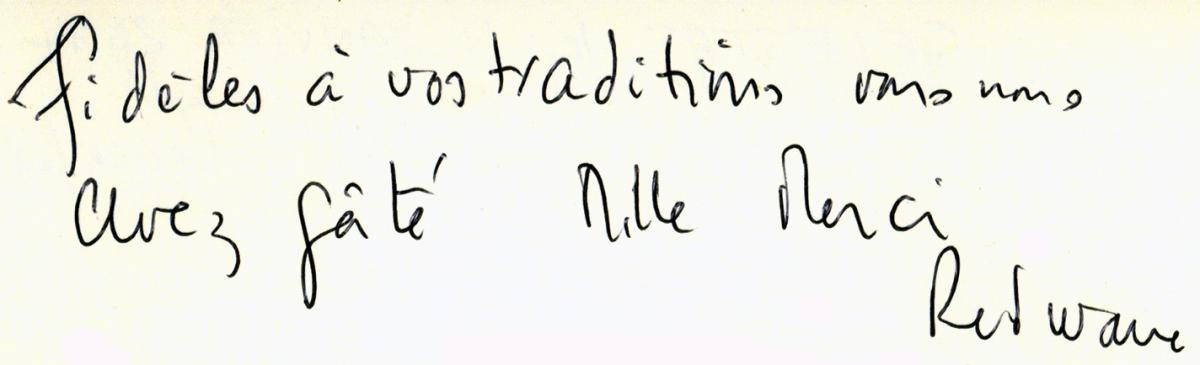 Fidèles à vos traditions vous nous
avez gâté Mille Merci
Redwane